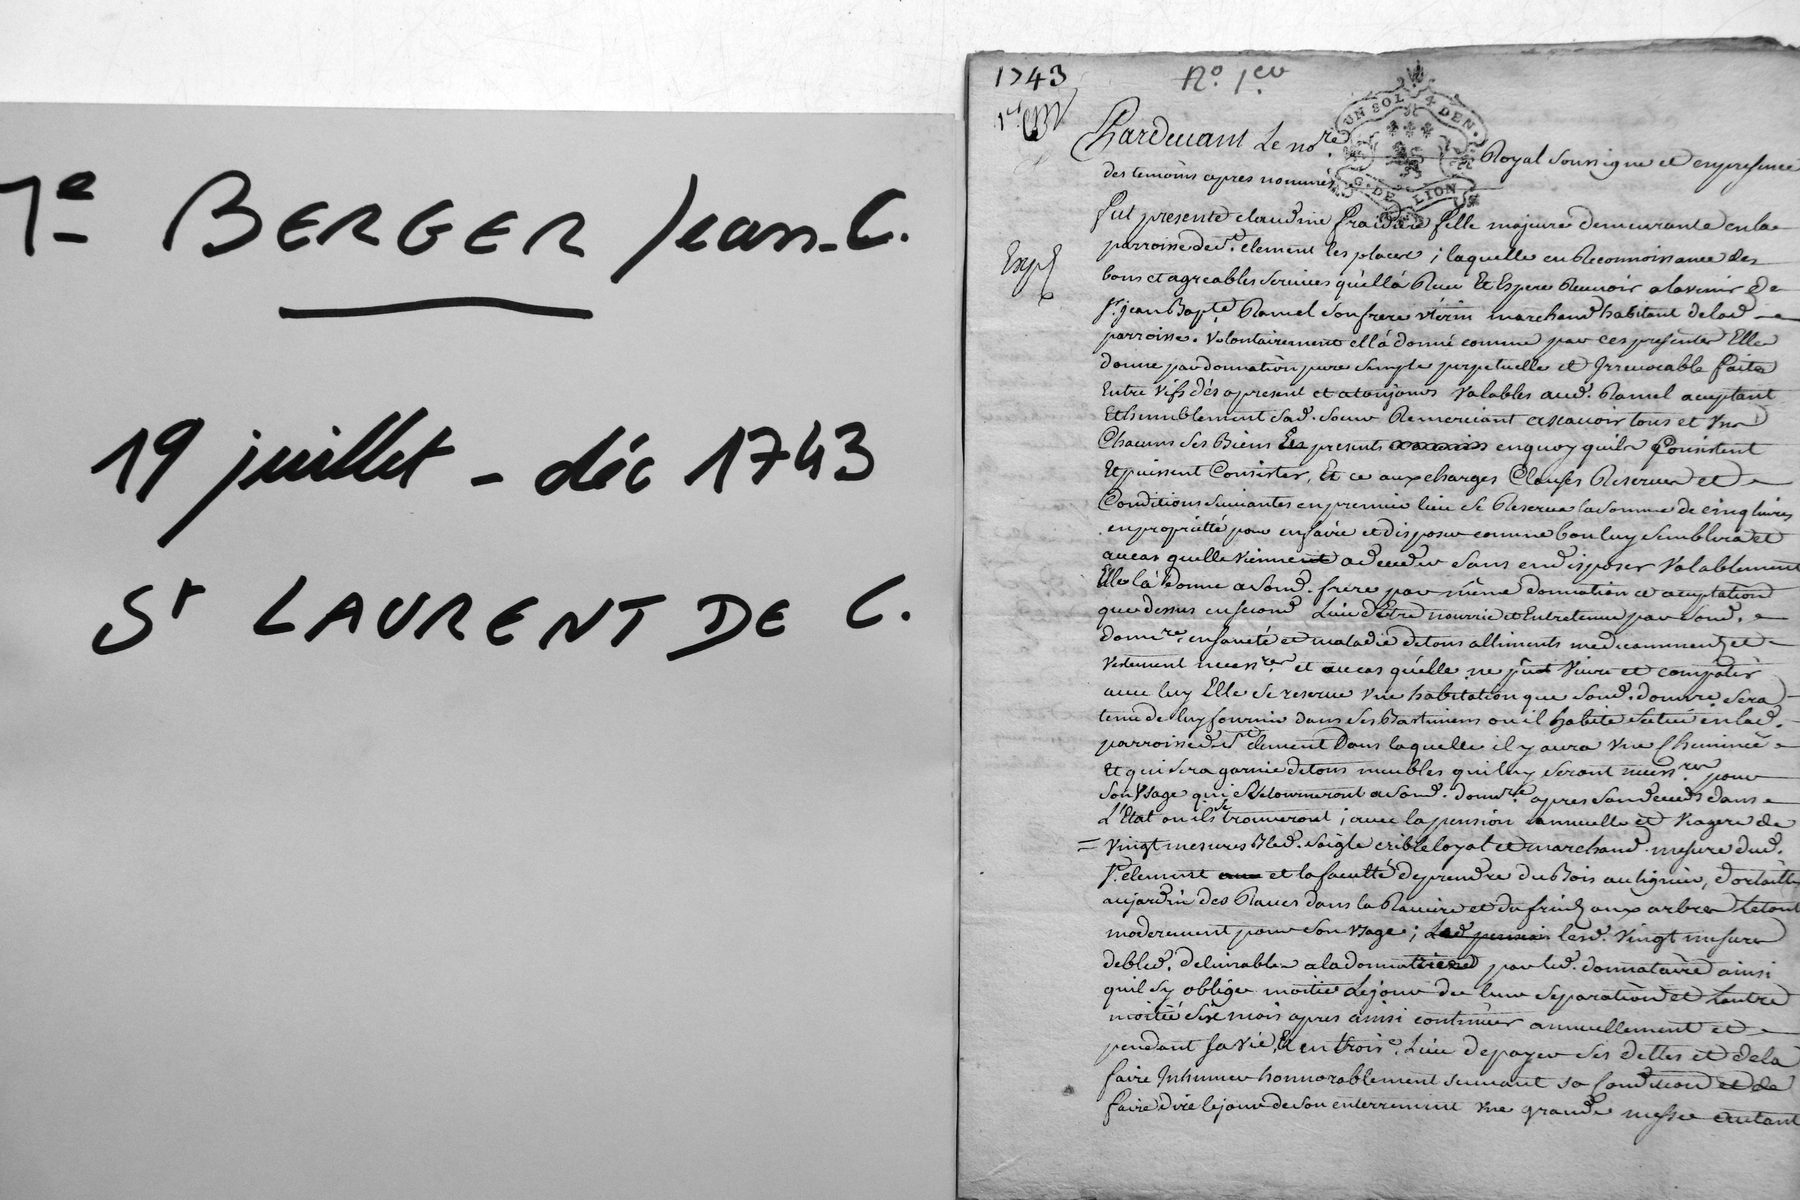 Me BERGER Jean-C.
19 juillet - déc 1743
St LAURENT DE C.
1743 No. 1er
UN SOL 4 DEN.
G. DE LION
Pardevant Le nore Royal soussigne et en presence
des temoins apres nommés
Expé
fut presente claudine fille majeure demeurante en la
parroisse de St. clement les places ; laquelle en Reconnoissance des
bons et agreables services qu'ella Reçu Et Espere Recevoir alavenir de
sr. jean Bapte Ramel son frere uterin marchand habitant de lad
parroisse. volontairement ella donné comme par ces presentes Elle
donne par donnation pure simple perpetuelle et Irrevocable faite
Entre vifs dés apresent et atoujours valables aud. Ramel aceptant
Et humblement sad. soeur Remerciant ascavoir tous et un
Chacuns ses Biens presents en quoy quils Consistent
Et puissent Consister, Et ce aux charges Clauses Reserves et
Conditions suivantes en premier lieu se Reserve la somme de cinq livres
en proprieté pour en faire et disposer comme bon luy semblera et
aucas quelle vienne a deceder sans en disposer valablement
Elle la donne a sond. frere par même donnation et aceptation
que dessus en second Lieu d'Etre nourrie et Entretenue par sond.
donre. en santé et maladie de tous alliments medicamment et
vestement necessres et aucas qu'elle ne put vivre et compatir
avec luy Elle se reserve une habitation que sond. donre. sera
tenu de luy fournir dans ses Bastimens ou il habite scitué en lad.
parroisse de St clement Dans laquelle il y aura une Cheminée
Et qui sera garnie de tous meubles qui luy seront necessres pour
son usage qui Retourneront a sond. donre. apres son deceds dans
L'Etat ou ils se trouveront ; avec la pension annuelle et viagere de
= vingt mesures Bled. soigle crible loyal et marchand mesure dud.
St. clement et la faculté de prendre du Bois au lignier,
aujardin des Raves dans la Raviere et du fruit aux arbres le tout
moderement pour son usage ; lesd. vingt mesures
de bled. delivrables a la donnatrice par led. donnataire ainsi
quil sy oblige moitie le jour de leur separation et l'autre
moitié six mois apres ainsi continuer annuellement et
pendant sa vie, Et en troise. Lieu de payer ses dettes et de la
faire Inhumer honnorablement suivant sa Condition et de
faire dire le jour de son enterrement une grande messe autant